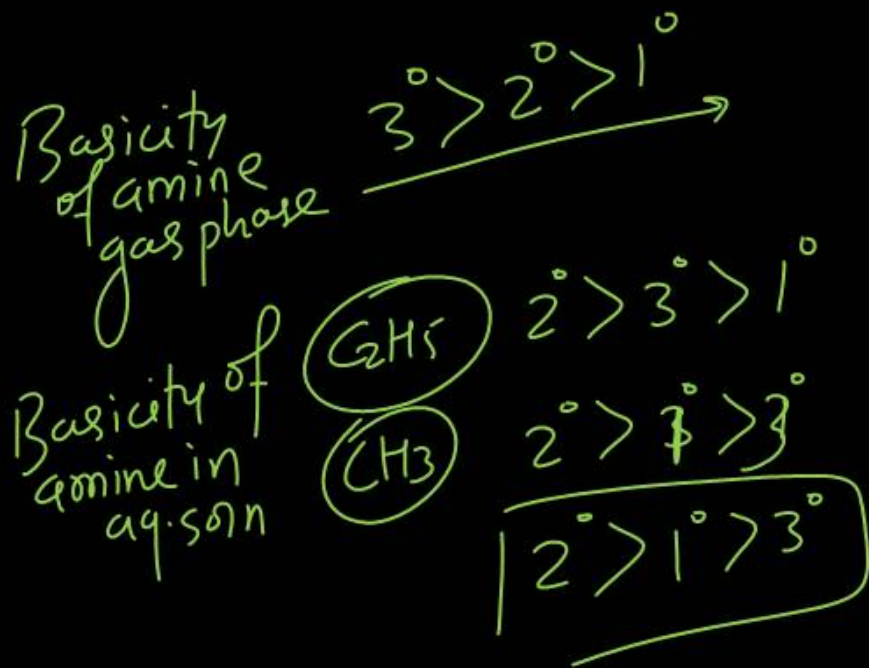 Basicity of amine gas phase 3° > 2° > 1°
Basicity of amine in aq. soln
C2H5 2° > 3° > 1°
CH3 2° > 1° > 3°
2° > 1° > 3°